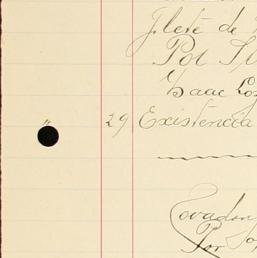 flete de
Por
Isaac Lo
" 29 Existencia
Covadon
Por